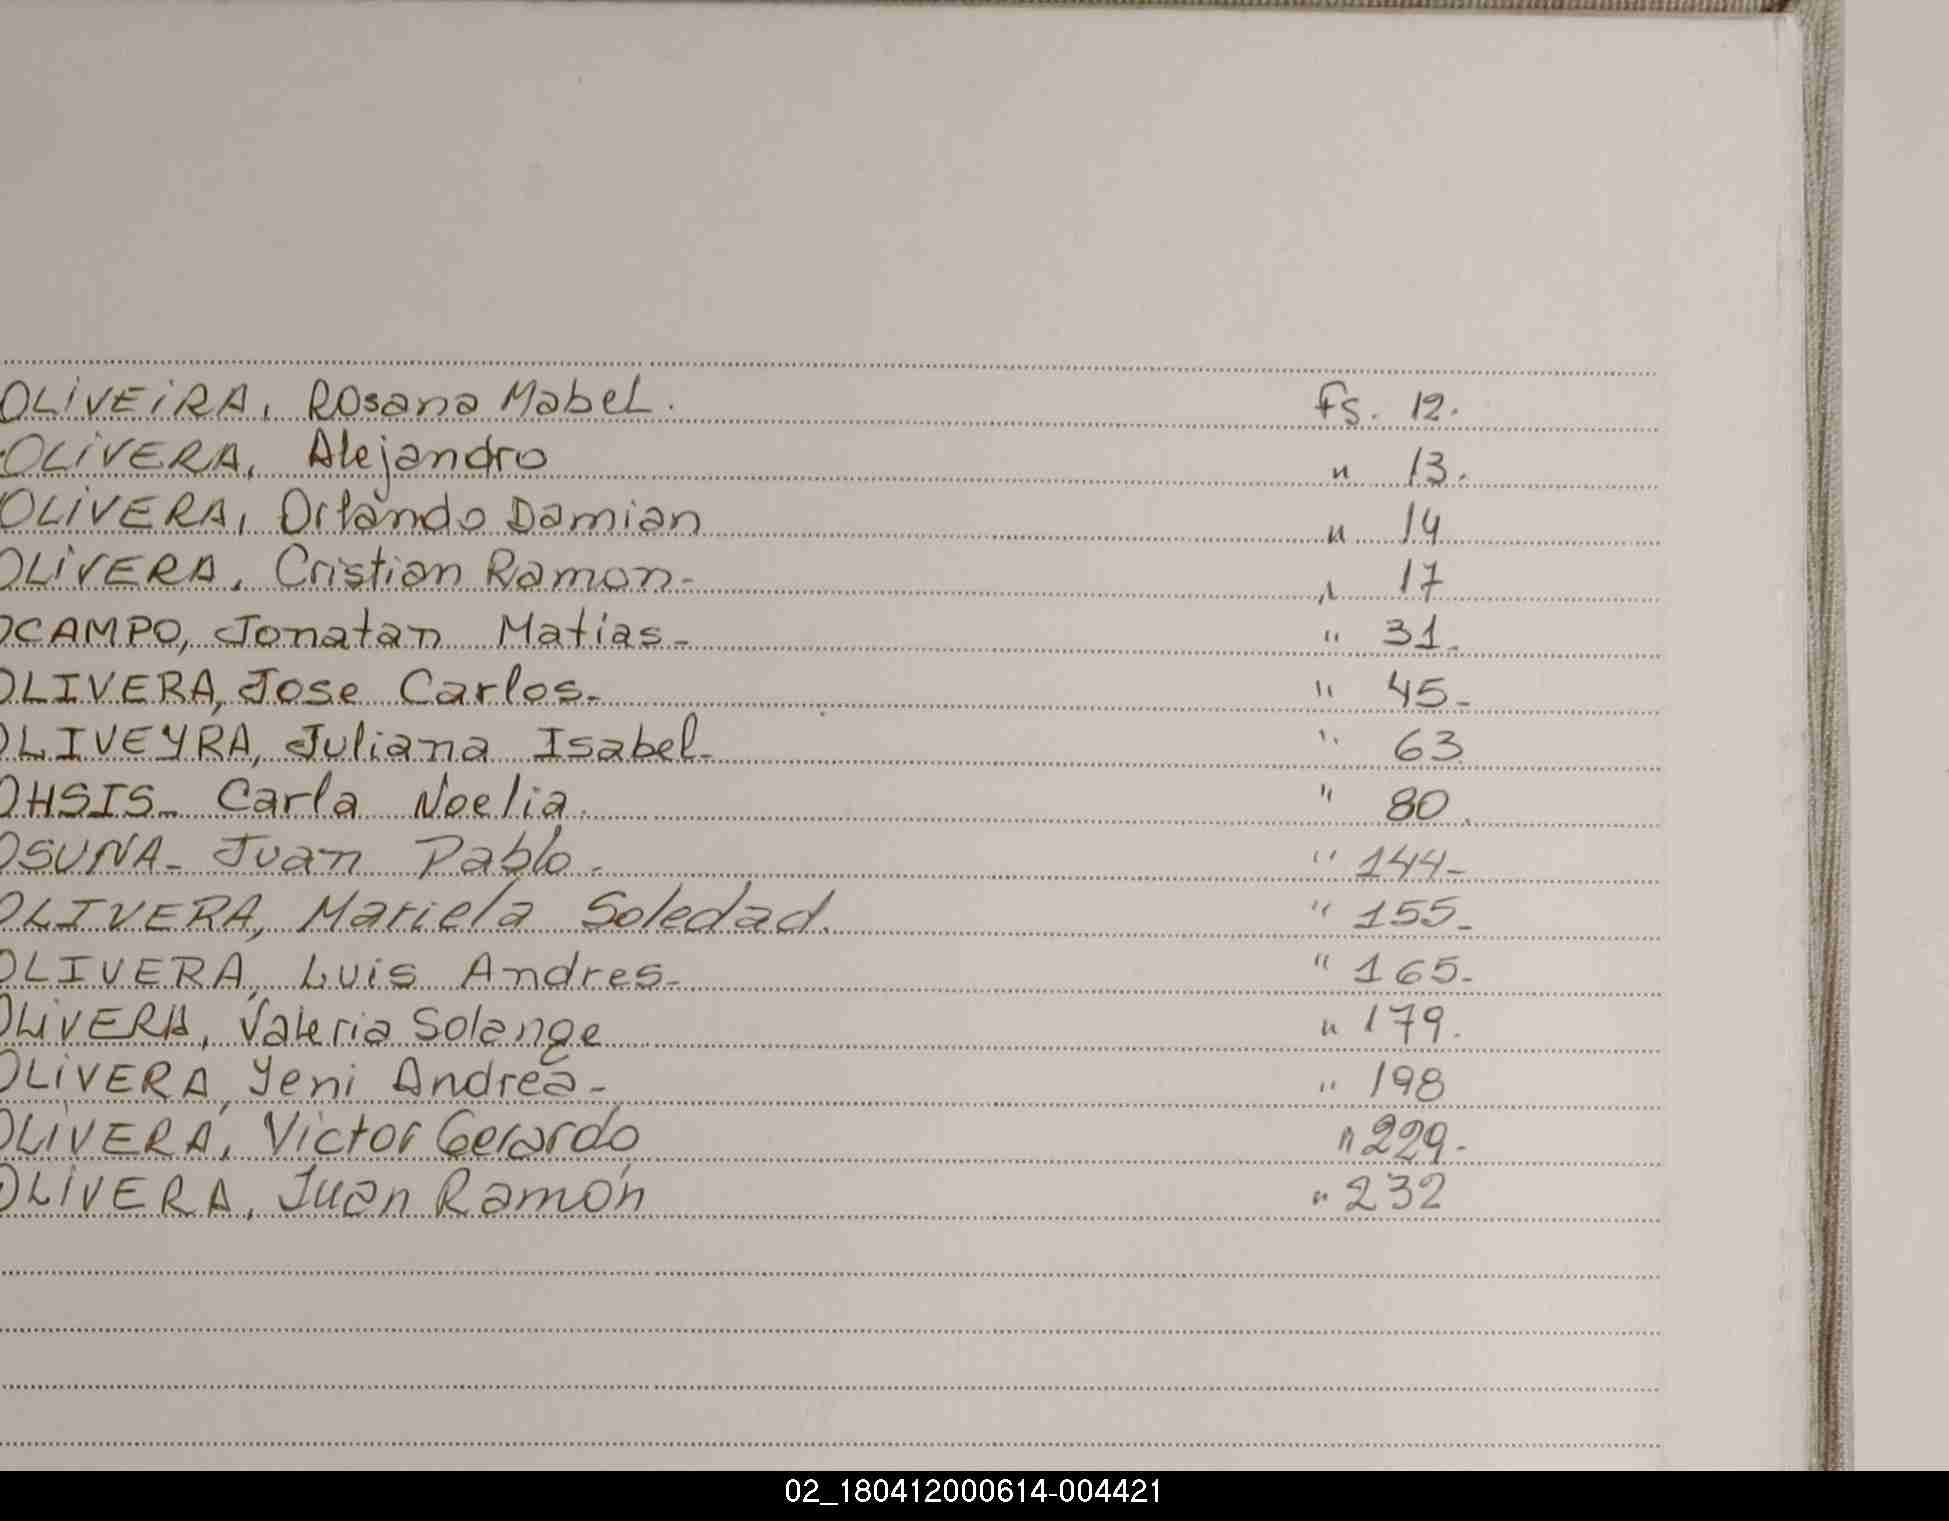 OLIVEIRA, Rosana Mabel. Fs. 12.
OLIVERA, Alejandro " 13.
OLIVERA, Orlando Damian " 14
OLIVERA, Cristian Ramon- " 17
OCAMPO, Jonatan Matias- " 31.
OLIVERA, Jose Carlos- " 45-
OLIVEYRA, Juliana Isabel- " 63
OHSIS- Carla Noelia. " 80.
OSUNA- Juan Pablo. " 144-
OLIVERA, Mariela Soledad. " 155-
OLIVERA, Luis Andres- " 165-
OLIVERA, Valeria Solange " 179.
OLIVERA, Yeni Andrea- " 198
OLIVERA, Victor Gerardo " 229-
OLIVERA, Juan Ramón " 232
02_180412000614-004421